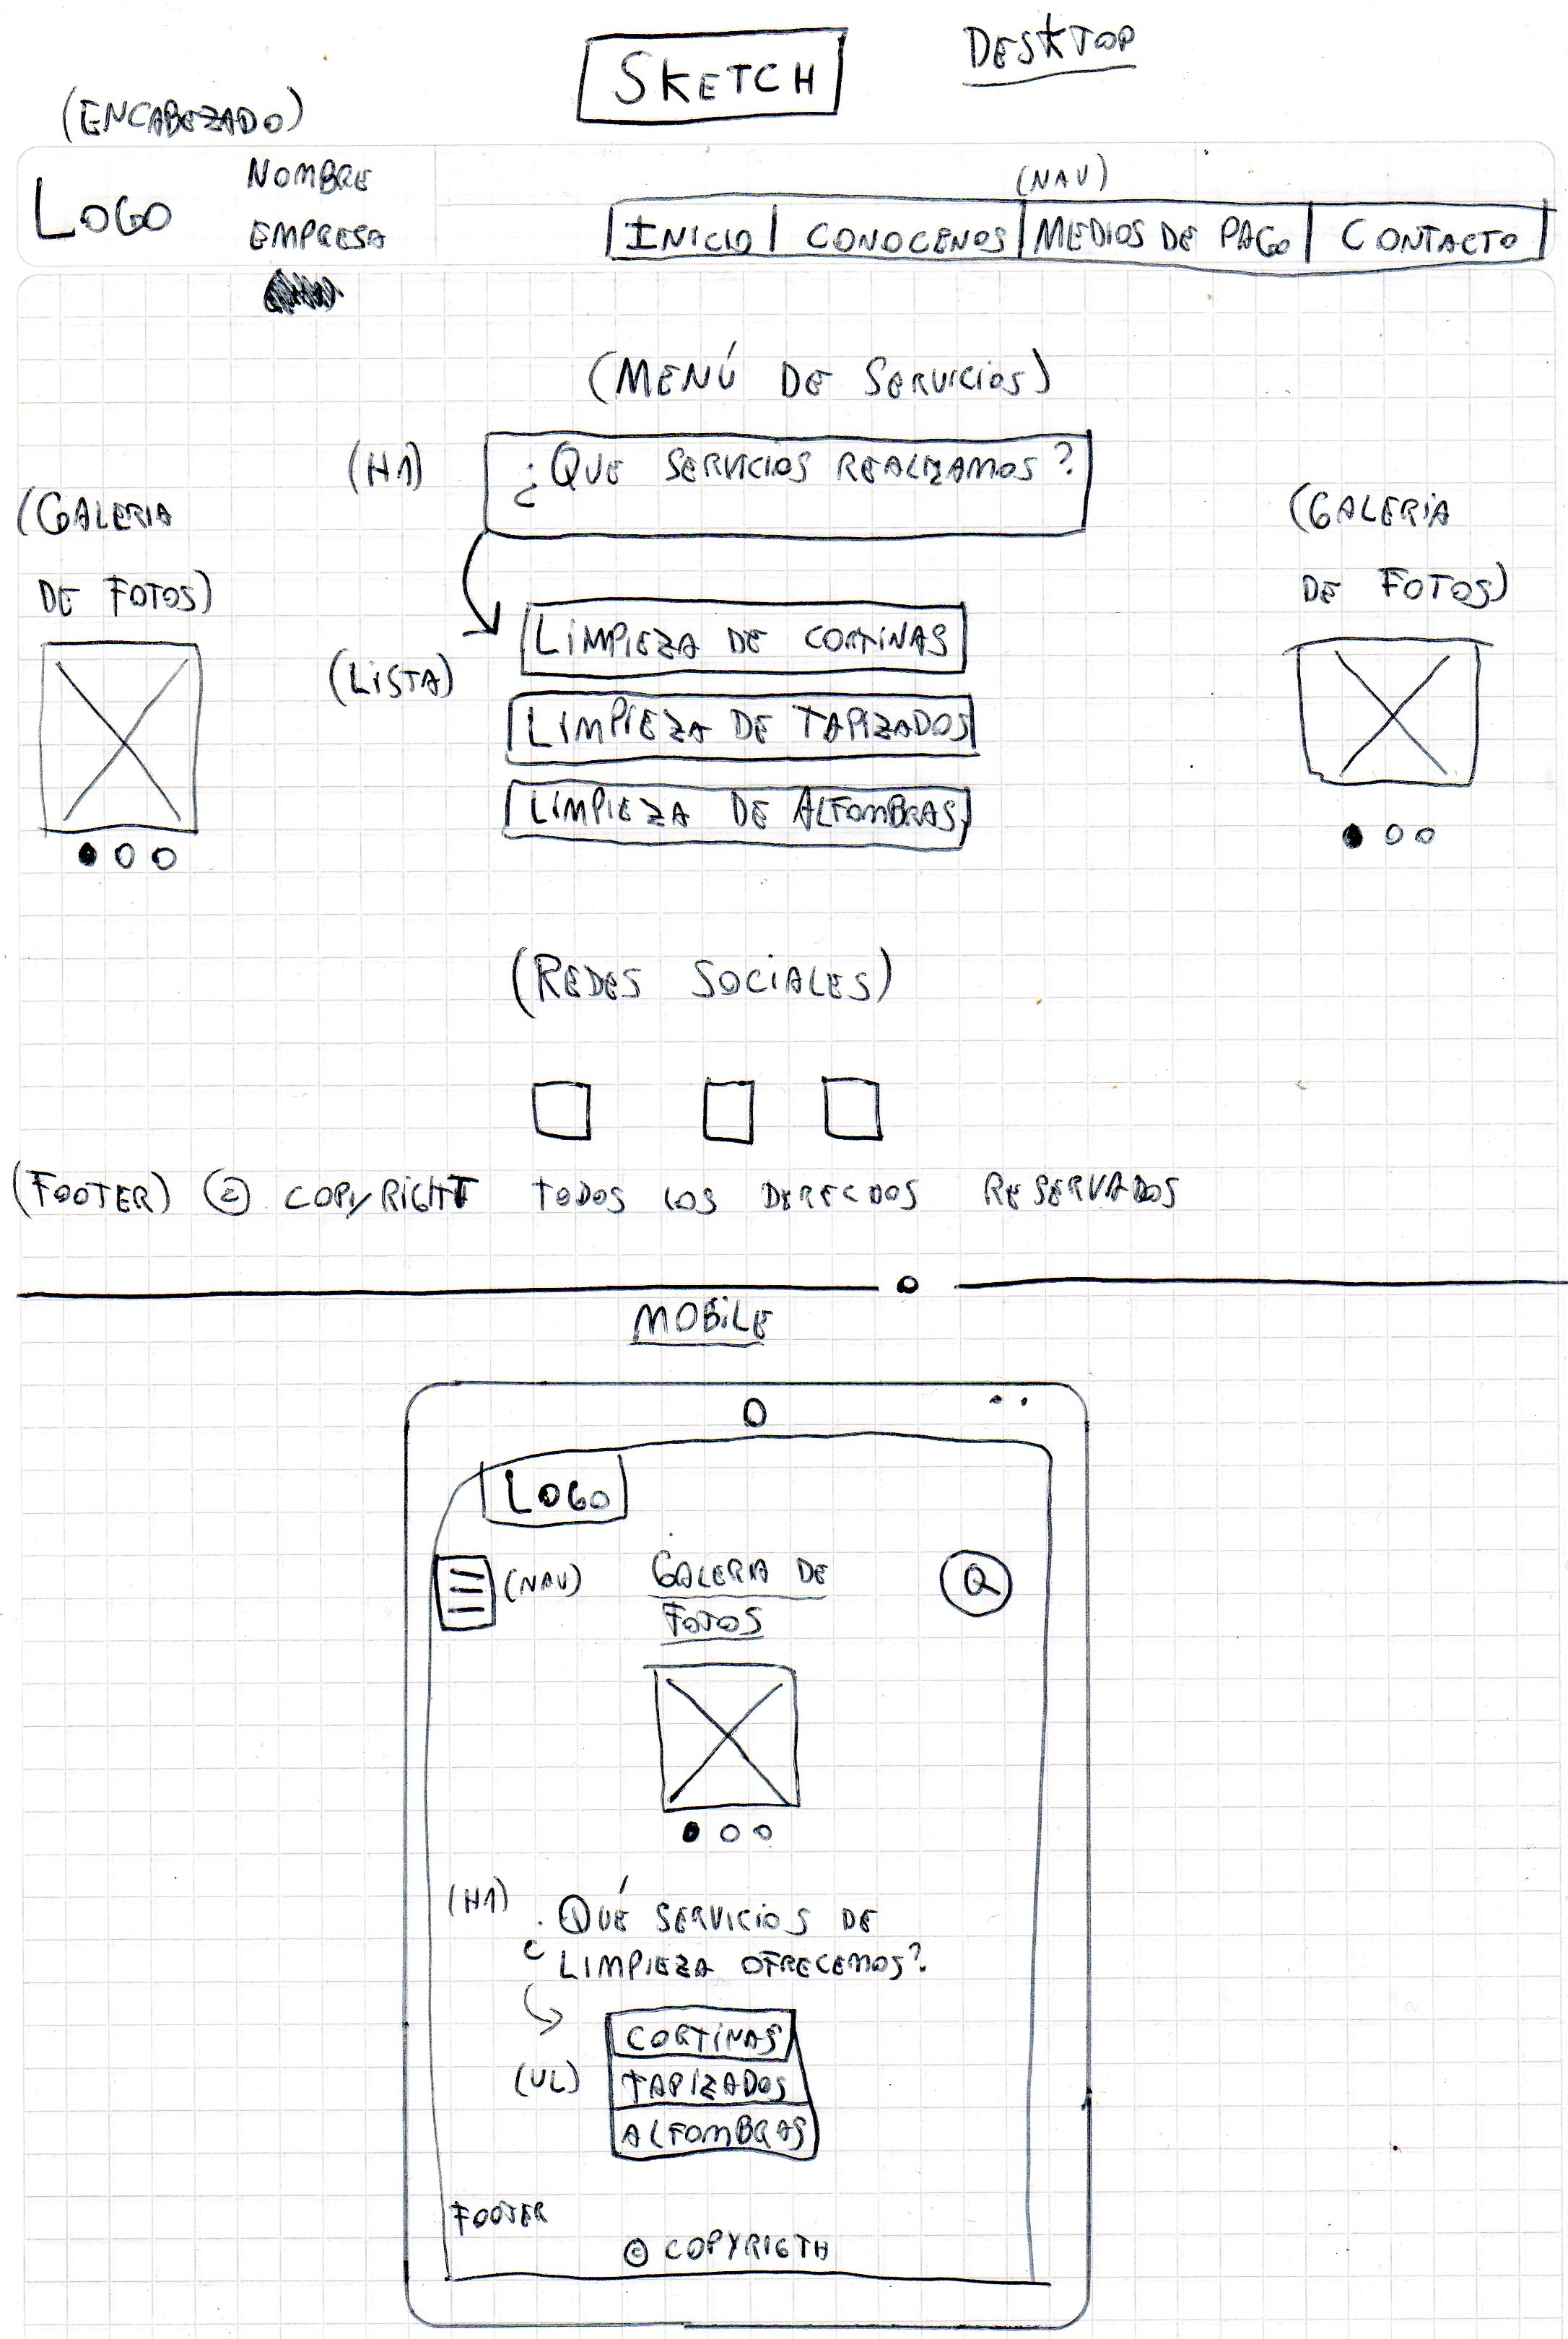 SKETCH
DESKTOP
(ENCABEZADO)
LOGO
NOMBRE
EMPRESA
(NAV)
INICIO CONOCENOS MEDIOS DE PAGO CONTACTO
(MENÚ DE SERVICIOS)
(H1)
¿QUE SERVICIOS REALIZAMOS?
(GALERIA
DE FOTOS)
(GALERIA
DE FOTOS)
(LISTA)
LIMPIEZA DE CORTINAS
LIMPIEZA DE TAPIZADOS
LIMPIEZA DE ALFOMBRAS
(REDES SOCIALES)
(FOOTER) © COPYRIGHT TODOS LOS DERECDOS RESERVADOS
MOBILE
LOGO
(NAV)
GALERIA DE
FOTOS
Q
(H1)
¿QUÉ SERVICIOS DE
LIMPIEZA OFRECEMOS?
(UL)
CORTINAS
TAPIZADOS
ALFOMBRAS
FOOTER
© COPYRIGTH